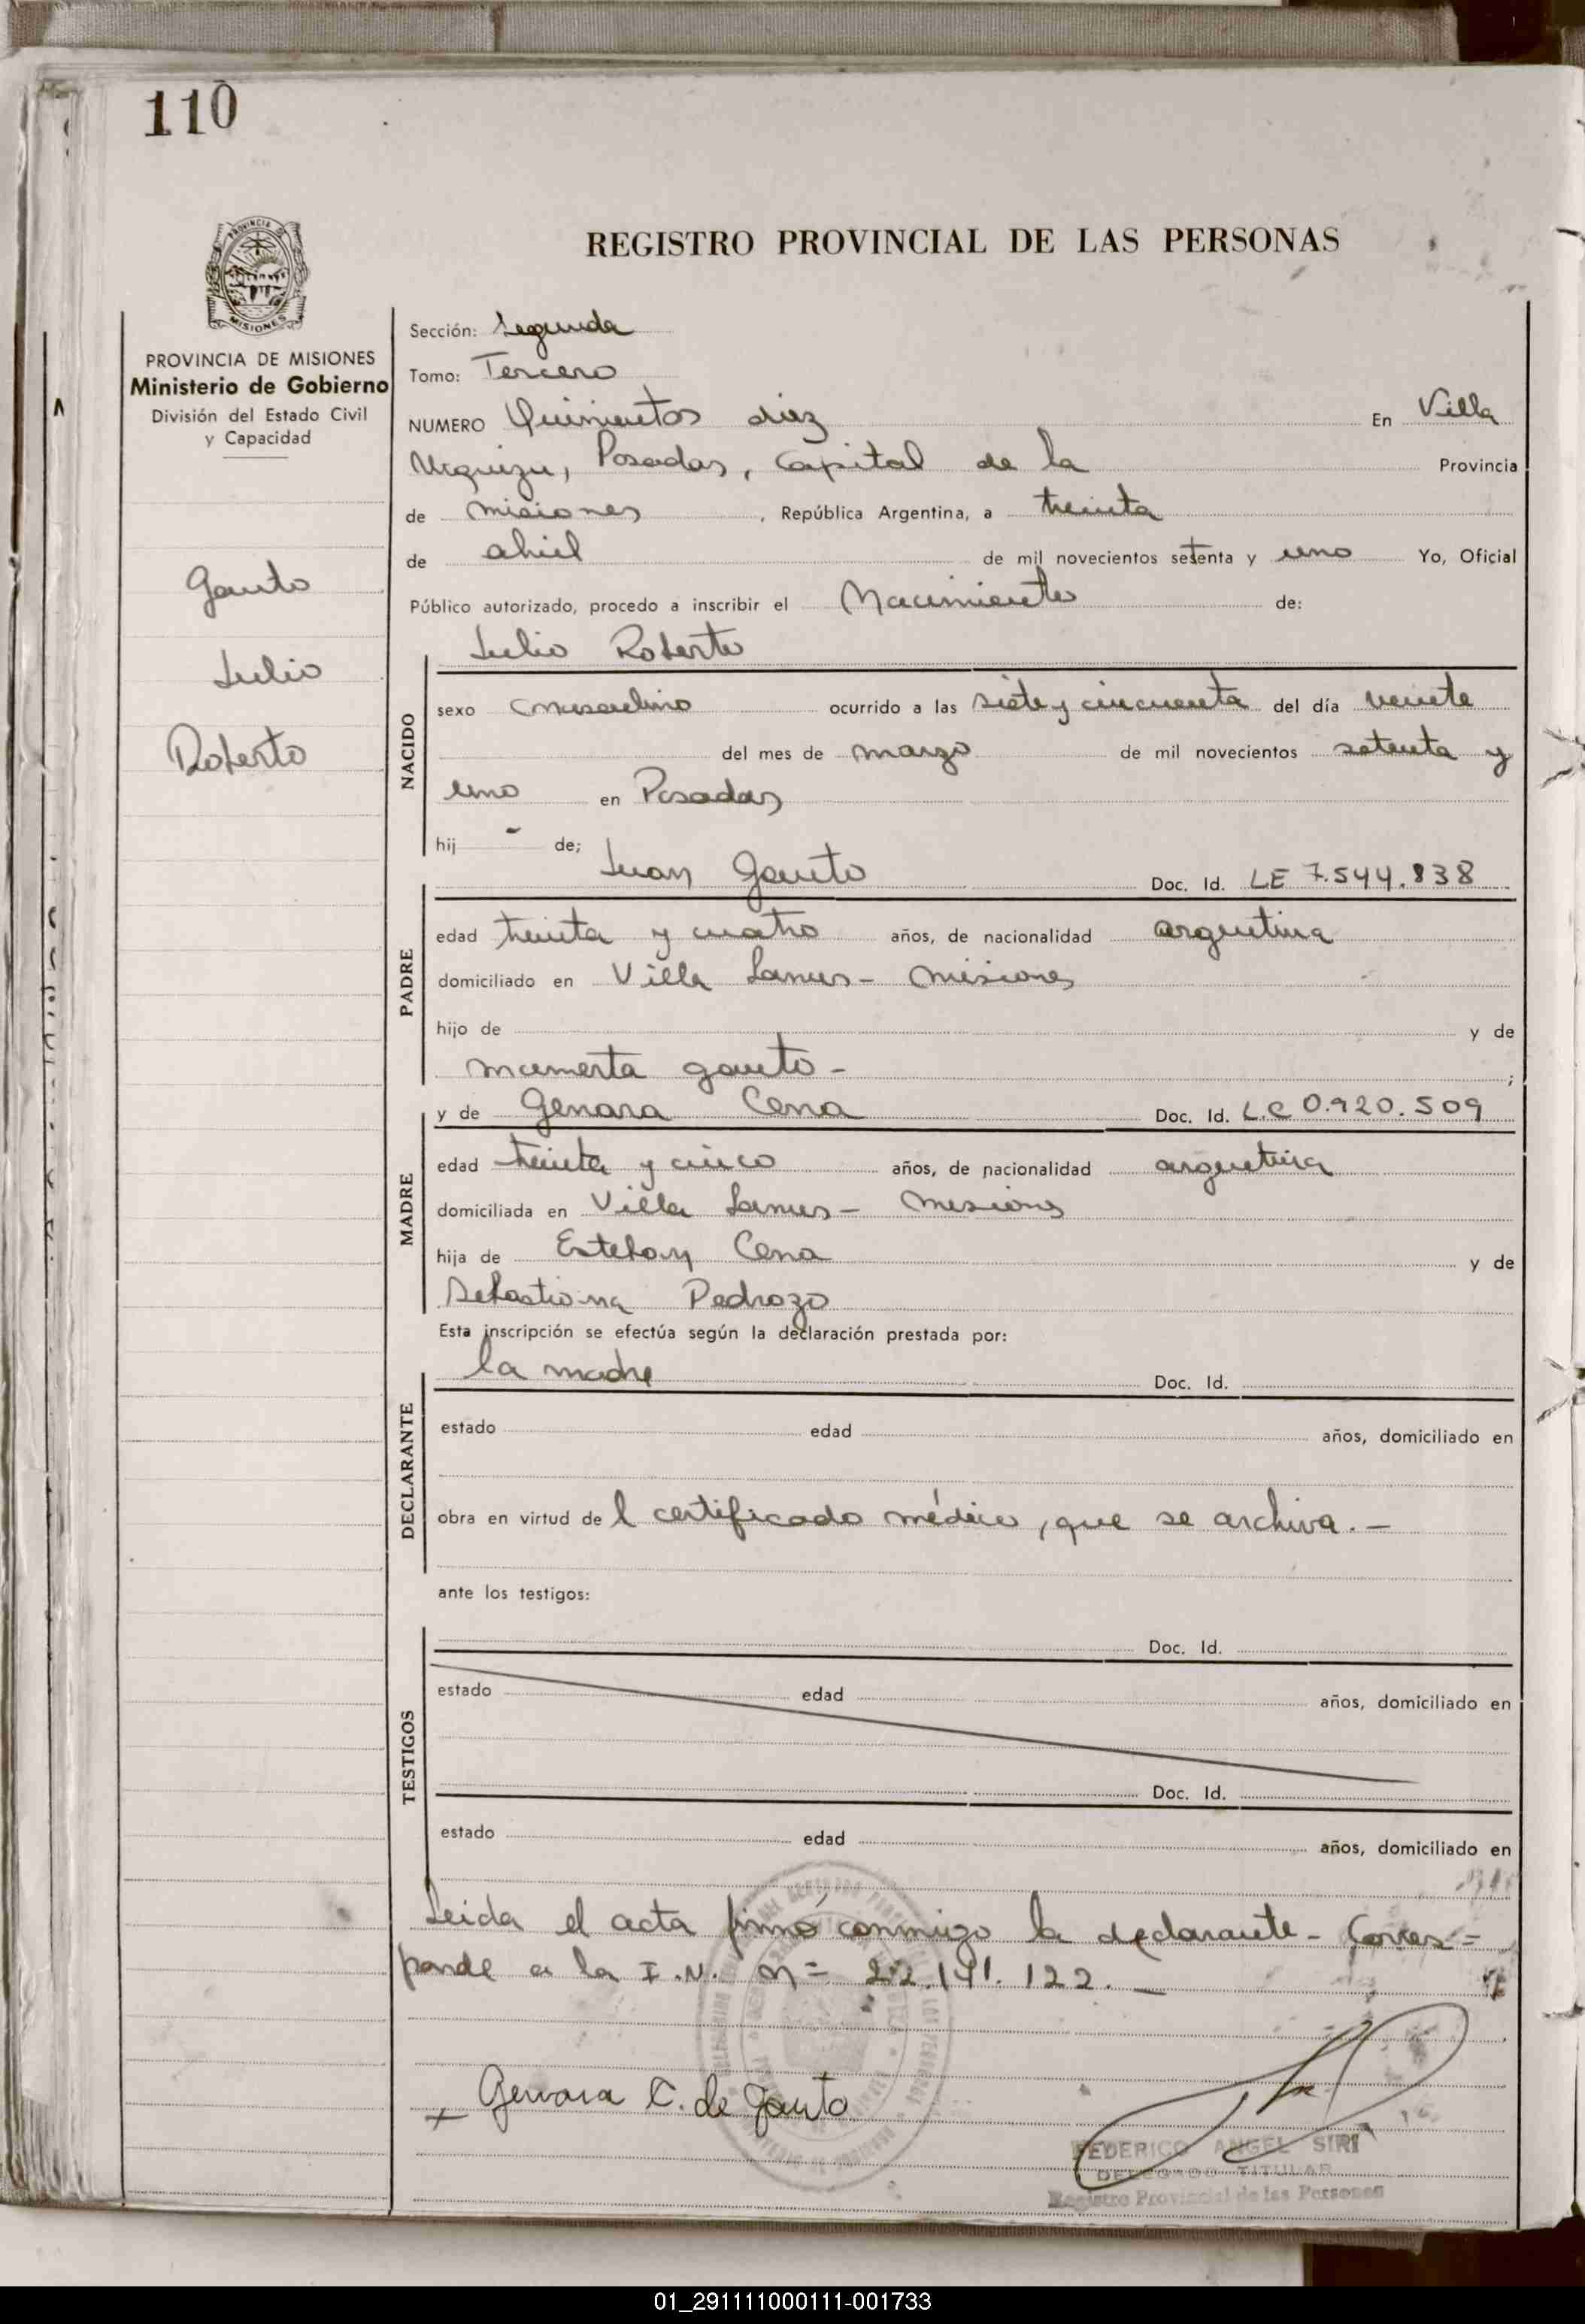 110
PROVINCIA DE
MISIONES
PROVINCIA DE MISIONES
Ministerio de Gobierno
División del Estado Civil
y Capacidad
Gauto
Julio
Roberto
REGISTRO PROVINCIAL DE LAS PERSONAS
Sección: Segunda
Tomo: Tercero
NUMERO Quinientos diez En Villa
Urquiza, Posadas, Capital de la Provincia
de Misiones, República Argentina, a treinta
de abril de mil novecientos setenta y uno Yo, Oficial
Público autorizado, procedo a inscribir el Nacimiento de:
Julio Roberto
NACIDO
sexo masculino ocurrido a las siete y cincuenta del día veinte
del mes de marzo de mil novecientos setenta y
uno en Posadas
hij - de;
Juan Gauto Doc. Id. LE 7.544.838
PADRE
edad treinta y cuatro años, de nacionalidad argentina
domiciliado en Villa Lanus - Misiones
hijo de y de
Mamerta Gauto - ;
y de Genara Cena Doc. Id. L.C 0.920.509
MADRE
edad treinta y cinco años, de nacionalidad argentina
domiciliada en Villa Lanus - Misiones
hija de Esteban Cena y de
Sebastiana Pedrozo
Esta inscripción se efectúa según la declaración prestada por:
la madre Doc. Id.
DECLARANTE
estado edad años, domiciliado en
obra en virtud de l certificado médico, que se archiva. -
ante los testigos:
Doc. Id.
TESTIGOS
estado edad años, domiciliado en
Doc. Id.
estado edad años, domiciliado en
Leida el acta firmó conmigo la declarante - Corres=
ponde a la I.N. n= 22.141.122. -
+ Genara C. de Gauto
FEDERICO ANGEL SIRI
DELEGADO TITULAR
Registro Provincial de las Personas
01_291111000111-001733